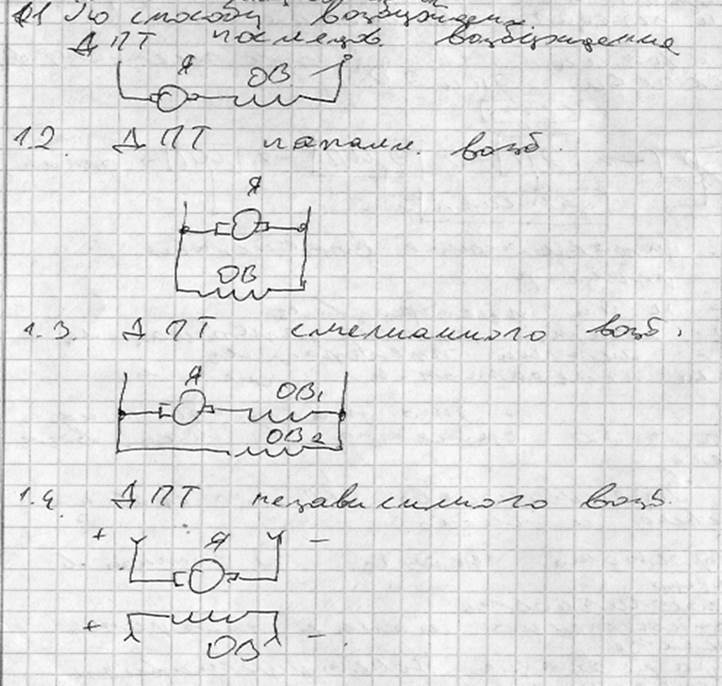 1 По способу возбуждения.
ДПТ последов. возбуждение
Я ОВ
1.2. ДПТ паралл. возб.
Я
ОВ
1.3. ДПТ смешанного возб.
Я ОВ₁
ОВ₂
1.4. ДПТ независимого возб.
+ Я –
+ ОВ –